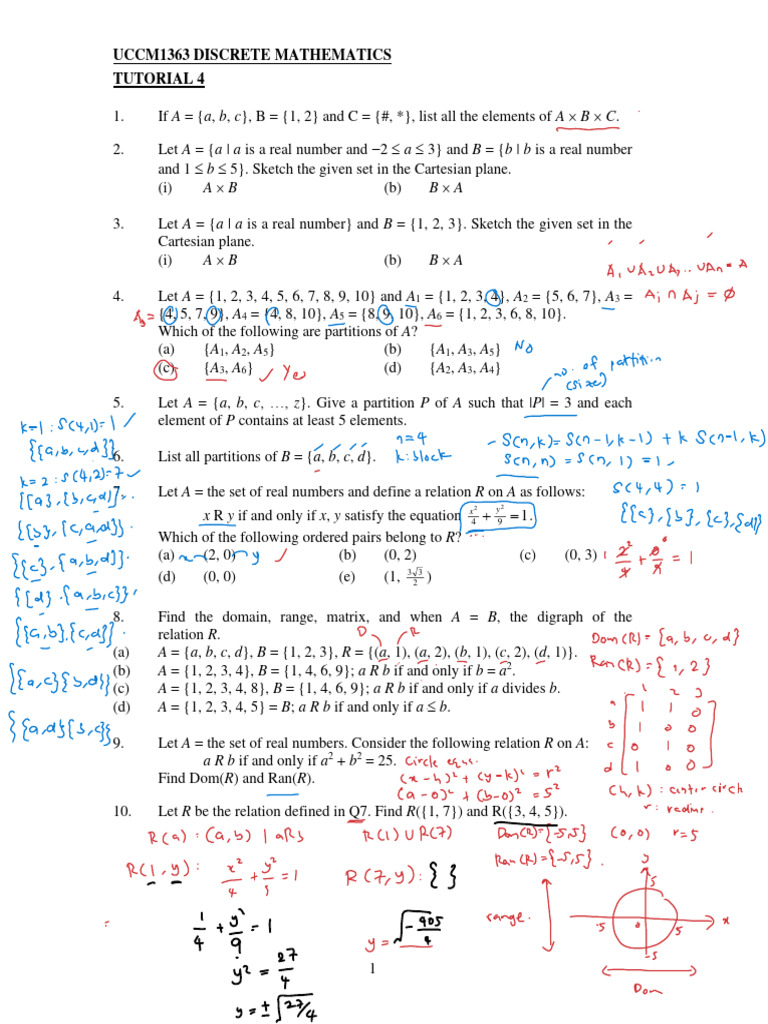 UCCM1363 DISCRETE MATHEMATICS
TUTORIAL 4
1. If A = {a, b, c}, B = {1, 2} and C = {#, *}, list all the elements of A × B × C.
2. Let A = {a | a is a real number and −2 ≤ a ≤ 3} and B = {b | b is a real number
and 1 ≤ b ≤ 5}. Sketch the given set in the Cartesian plane.
(i) A × B (b) B × A
3. Let A = {a | a is a real number} and B = {1, 2, 3}. Sketch the given set in the
Cartesian plane.
(i) A × B (b) B × A
A₁ ∪ A₂ ∪ A₃ ... ∪ An = A
4. Let A = {1, 2, 3, 4, 5, 6, 7, 8, 9, 10} and A1 = {1, 2, 3, 4}, A2 = {5, 6, 7}, A3 =
Ai ∩ Aj = ∅
A₃ = {4, 5, 7, 9}, A4 = {4, 8, 10}, A5 = {8, 9, 10}, A6 = {1, 2, 3, 6, 8, 10}.
Which of the following are partitions of A?
(a) {A1, A2, A5} (b) {A1, A3, A5} No
(c) {A3, A6} ✓ Yes (d) {A2, A3, A4}
no. of partition
(size)
5. Let A = {a, b, c, …, z}. Give a partition P of A such that |P| = 3 and each
element of P contains at least 5 elements.
k=1 : S(4,1)=1 ✓
{{a,b,c,d}}
n=4
k: block
- S(n,k) = S(n-1,k-1) + k S(n-1,k)
S(n,n) = S(n,1) = 1
6. List all partitions of B = {a, b, c, d}.
k=2 : S(4,2)=7 ✓
{{a},{b,c,d}}
{{b},{c,a,d}}
{{c},{a,b,d}}
{{d},{a,b,c}}
{{a,b},{c,d}}
{{a,c}{b,d}}
{{a,d}{b,c}}
S(4,4) = 1
{{c},{b},{c},{d}}
7. Let A = the set of real numbers and define a relation R on A as follows:
x R y if and only if x, y satisfy the equation x²/4 + y²/9 = 1.
Which of the following ordered pairs belong to R?
(a) x (2, 0) y ✓ (b) (0, 2) (c) (0, 3)
2²/4 + 0²/9 = 1
(d) (0, 0) (e) (1, 3√3/2)
8. Find the domain, range, matrix, and when A = B, the digraph of the
relation R.
D R
(a) A = {a, b, c, d}, B = {1, 2, 3}, R = {(a, 1), (a, 2), (b, 1), (c, 2), (d, 1)}.
(b) A = {1, 2, 3, 4}, B = {1, 4, 6, 9}; a R b if and only if b = a².
(c) A = {1, 2, 3, 4, 8}, B = {1, 4, 6, 9}; a R b if and only if a divides b.
(d) A = {1, 2, 3, 4, 5} = B; a R b if and only if a ≤ b.
Dom(R) = {a, b, c, d}
Ran(R) = {1, 2}
1 2 3
a 1 1 0
b 1 0 0
c 0 1 0
d 1 0 0
9. Let A = the set of real numbers. Consider the following relation R on A:
a R b if and only if a² + b² = 25.
Find Dom(R) and Ran(R).
Circle equa.
(x-h)² + (y-k)² = r²
(a-0)² + (b-0)² = 5²
(h,k) : center circ
r : radius.
10. Let R be the relation defined in Q7. Find R({1, 7}) and R({3, 4, 5}).
R(a) : (a,b) | aRb
R(1) ∪ R(7)
Dom(R) = {-5,5}
(0,0) r=5
Ran(R) = {-5,5}.
R(1,y) : x²/4 + y²/9 = 1
R(7,y) : { }
1/4 + y²/9 = 1
y² = 27/4
y = ±√27/4
y = √-405/4
range.
y
5
-5 0 5 x
-5
Dom
1